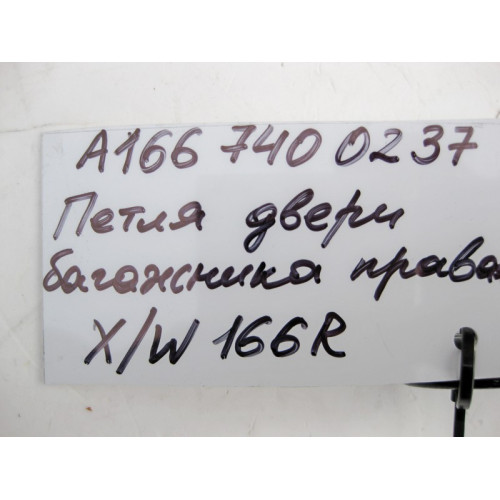 A166 740 0237
Петля двери
багажника правая
X/W 166R